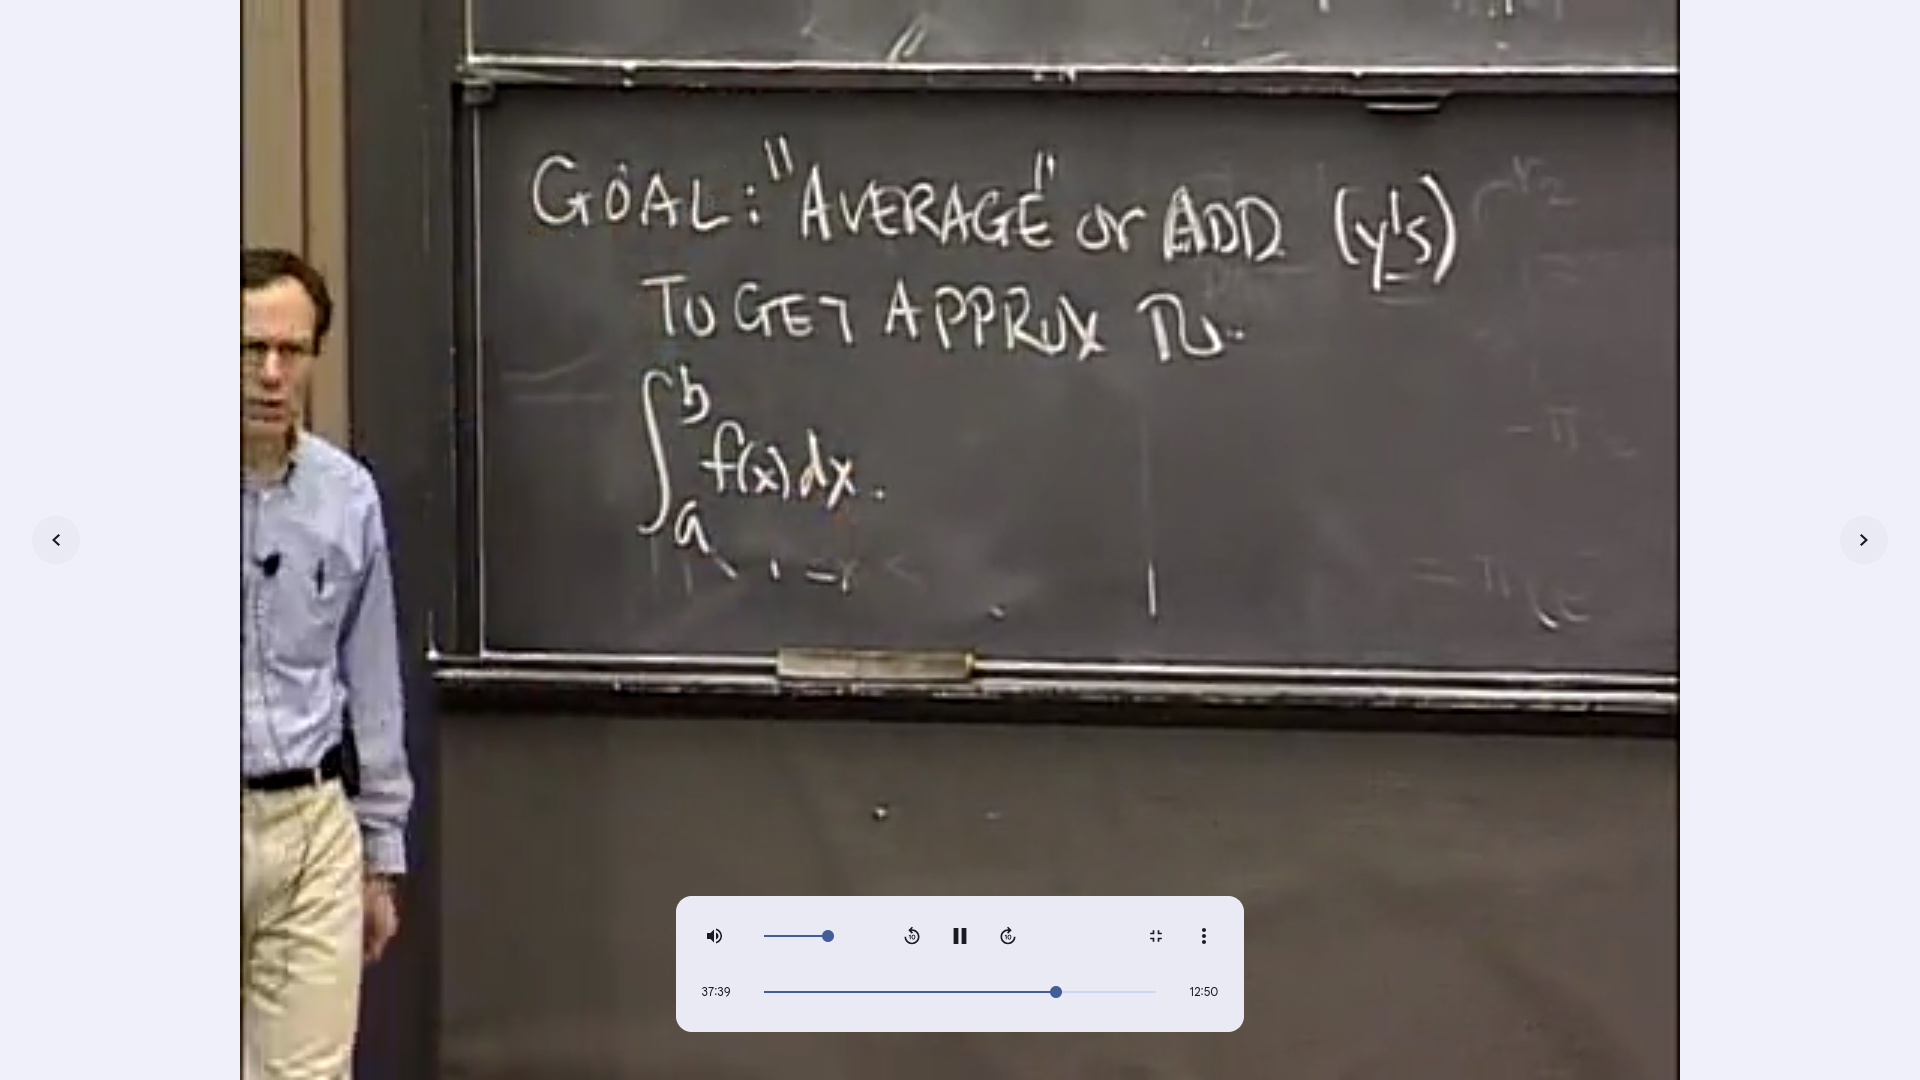 GOAL: "AVERAGE" or ADD (y's)
TO GET APPROX TO
∫ₐᵇ f(x) dx.
37:39
12:50